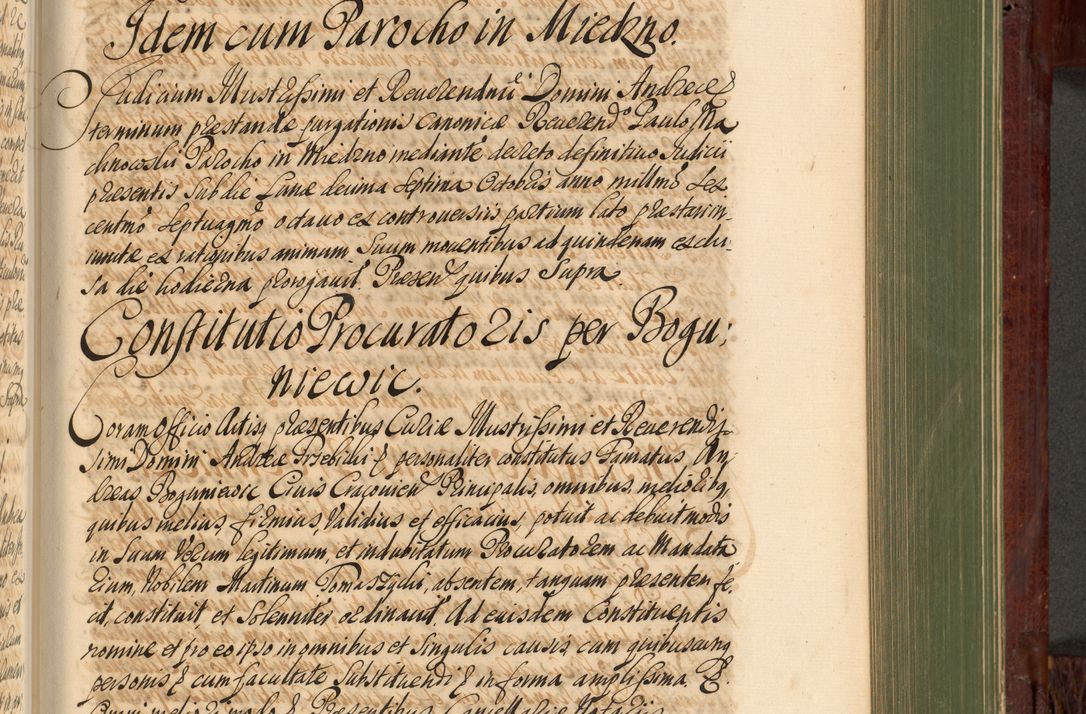 Idem cum Parocho in Miedzno.
Judicium Illustrissimi et Reuerendissi Domini Andreæ &
terminum præstandæ purgationis canonicæ Reuerendo Paulo Ma
chnowski Parocho in Miedzno mediante decreto definitiuo Judicii
præsentis sub die Lunæ decima septima Octobris anno millmo sex
centmo septuagmo octauo ex controuersiis partium lato præstari in-
iunctæ ex rationibus animum suum mouentibus ad quindenam exclu-
sa die hodierna prorogauit. Præsen quibus supra.
Constitutio Procuratoris per Bogu:
niewic.
Coram Officio Actisq præsentibus Curiæ Illustrissimi et Reuerendis
simi Domini Andreæ Trzebicki & personaliter constitutus Famatus An
dreas Boguniewic Ciuis Cracouien Principalis, omnibus, medio &nq
quibus melius, firmius, validius et efficacius, potuit ac debuit modis
in suum verum legitimum et indubitatum Procuratorem ac Mandata
rium, Nobilem Martinum Tomaszycki, absentem, tanquam præsentem fe
cit, constituit et solenniter ordinauit. Ad eiusdem Constituentis
nomine et pro eo ipso in omnibus et singulis causis, cum quibuscunq
personis & cum facultate substituendi & in forma amplissima. &
Omni meliori modo & Præsentibus Cancellariæ Notariis